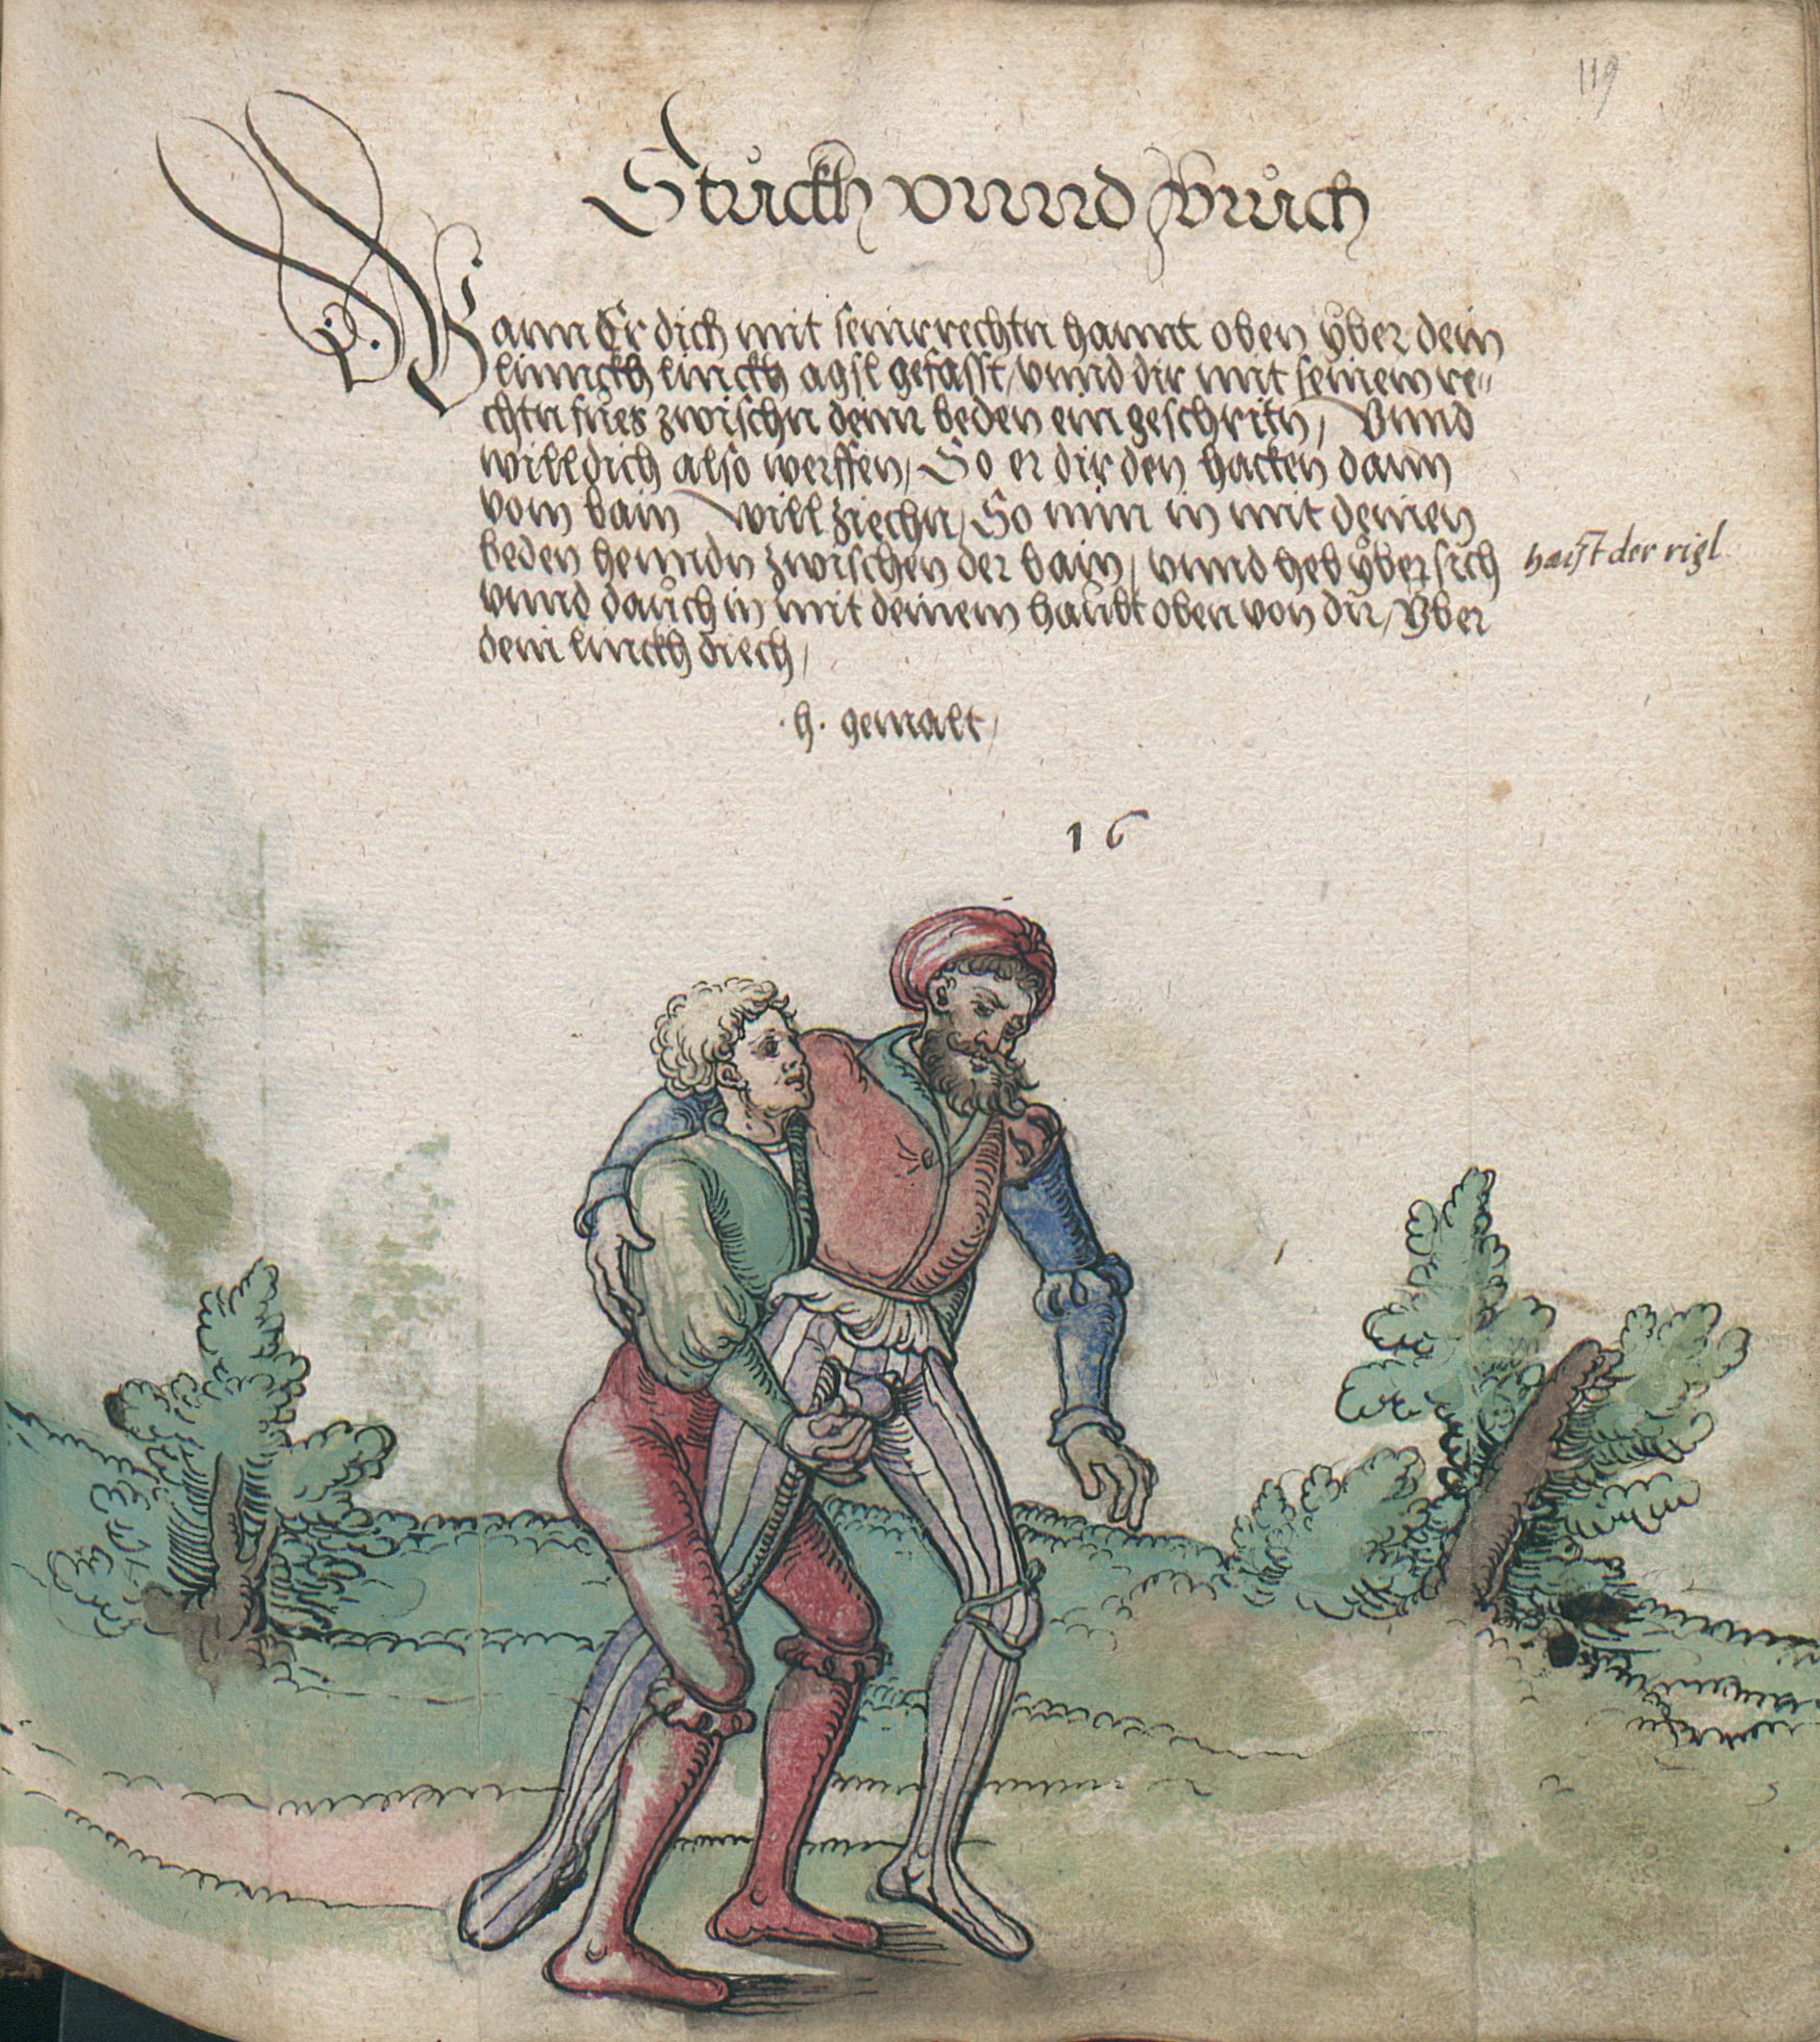 119
Stuckh vnnd Bruch
Wann Er dich mit seinr rechtn hannt oben yber dein
linnckh linckh agsl gefasst, vnnd dir mit seinem re„
chtn fues zwischn deinr beden ein geschritn, Vnnd
will dich also werffen, So er dir den hacken dann
vom bain will ziechn, So nim in mit deinen
beden henndn zwischen der bain, vnnd heb yber sich
haist der rigl
vnnd dauch in mit deinem haubt oben von dir, Yber
dein linckh diech,
·h· gemalt,
16